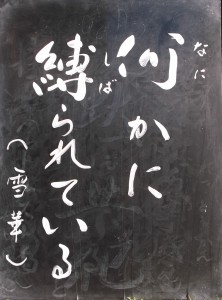 何かに
なに
縛られている
しば
(雪華)